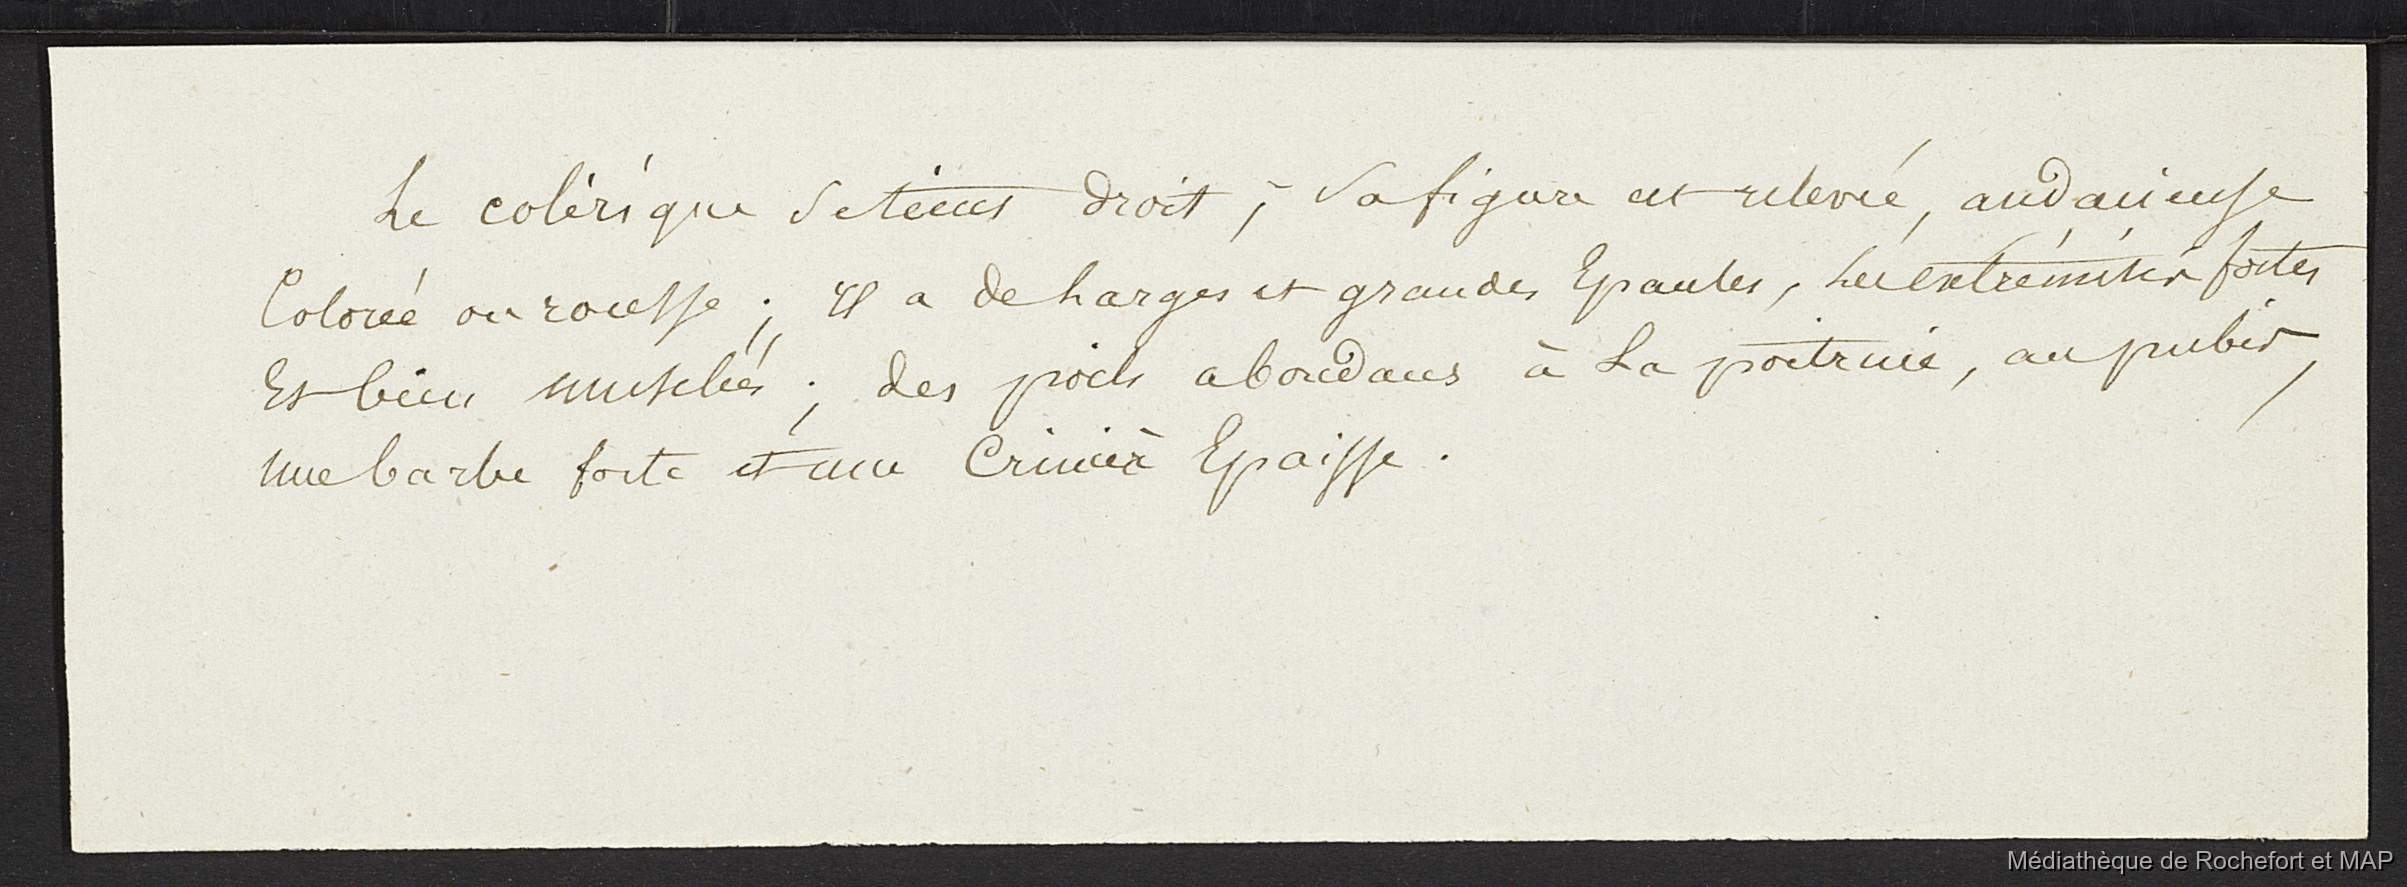 Le colérique se tient droit ; sa figure est relevée, audacieuse
Colorée ou rousse ; Il a de Larges et grandes Epaules, Les extrémités fortes
Et bien musclées ; des poils abondans à La poitrine, au pubis,
une barbe forte et une Crinière Epaisse.
Médiathèque de Rochefort et MAP